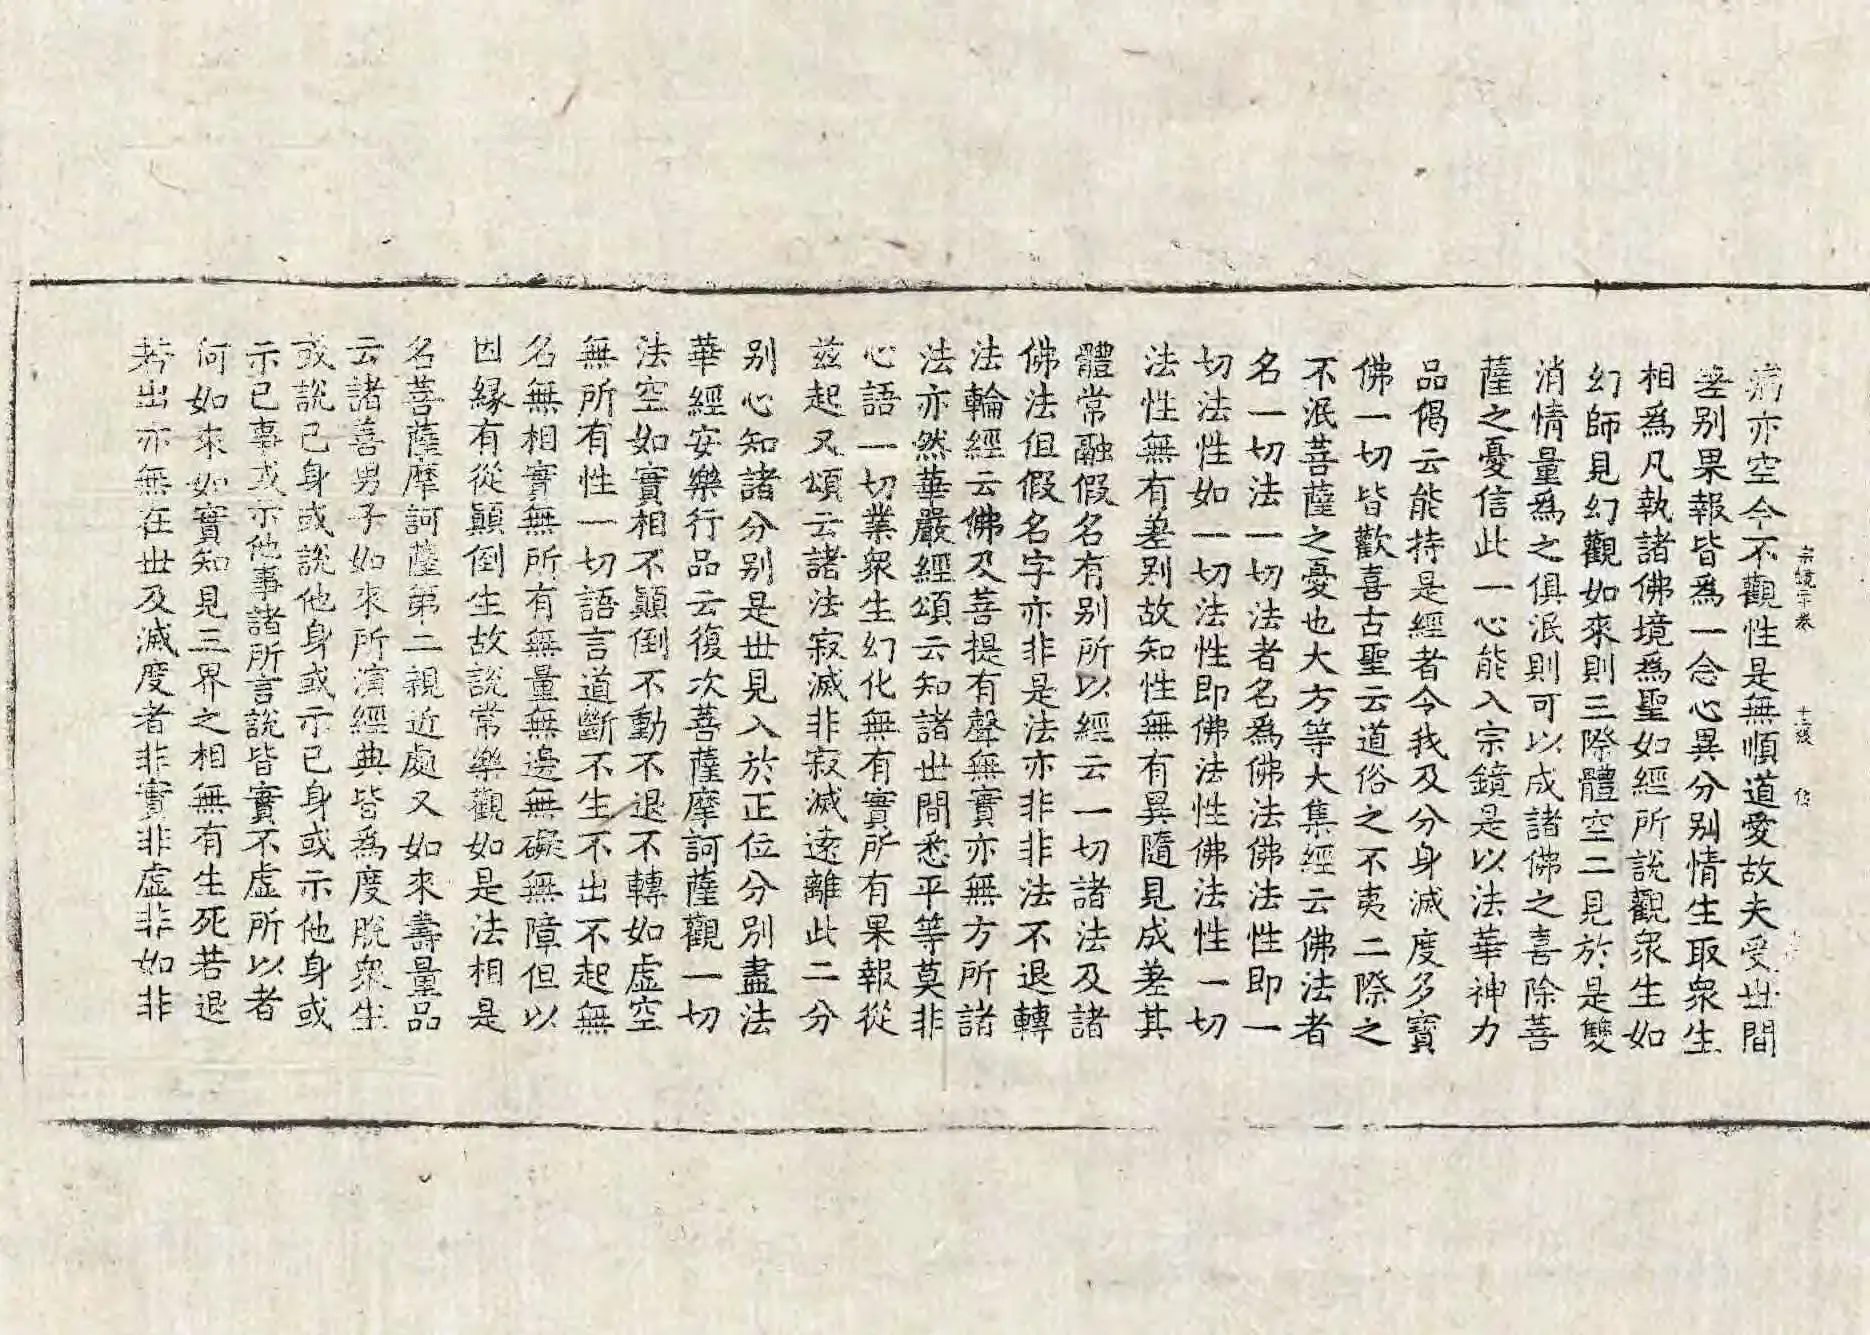 病亦空今不觀性是無順道愛故夫受世間
差別果報皆為一念心異分別情生取衆生
相為凡執諸佛境為聖如經所說觀衆生如
幻師見幻觀如來則三際體空二見於是雙
消情量為之俱泯則可以成諸佛之喜除菩
薩之憂信此一心能入宗鏡是以法華神力
品偈云能持是經者令我及分身滅度多寶
佛一切皆歡喜古聖云道俗之不夷二際之
不泯菩薩之憂也大方等大集經云佛法者
名一切法一切法者名為佛法佛法性即一
切法性如一切法性即佛法性佛法性一切
法性無有差別故知性無有異隨見成差其
體常融假名有別所以經云一切諸法及諸
佛法但假名字亦非是法亦非非法不退轉
法輪經云佛及菩提有聲無實亦無方所諸
法亦然華嚴經頌云知諸世間悉平等莫非
心語一切業衆生幻化無有實所有果報從
茲起又頌云諸法寂滅非寂滅遠離此二分
別心知諸分別是世見入於正位分別盡法
華經安樂行品云復次菩薩摩訶薩觀一切
法空如實相不顛倒不動不退不轉如虛空
無所有性一切語言道斷不生不出不起無
名無相實無所有無量無邊無礙無障但以
因緣有從顛倒生故說常樂觀如是法相是
名菩薩摩訶薩第二親近處又如來壽量品
云諸善男子如來所演經典皆為度脫衆生
或說己身或說他身或示己身或示他身或
示己事或示他事諸所言說皆實不虛所以者
何如來如實知見三界之相無有生死若退
若出亦無在世及滅度者非實非虛非如非